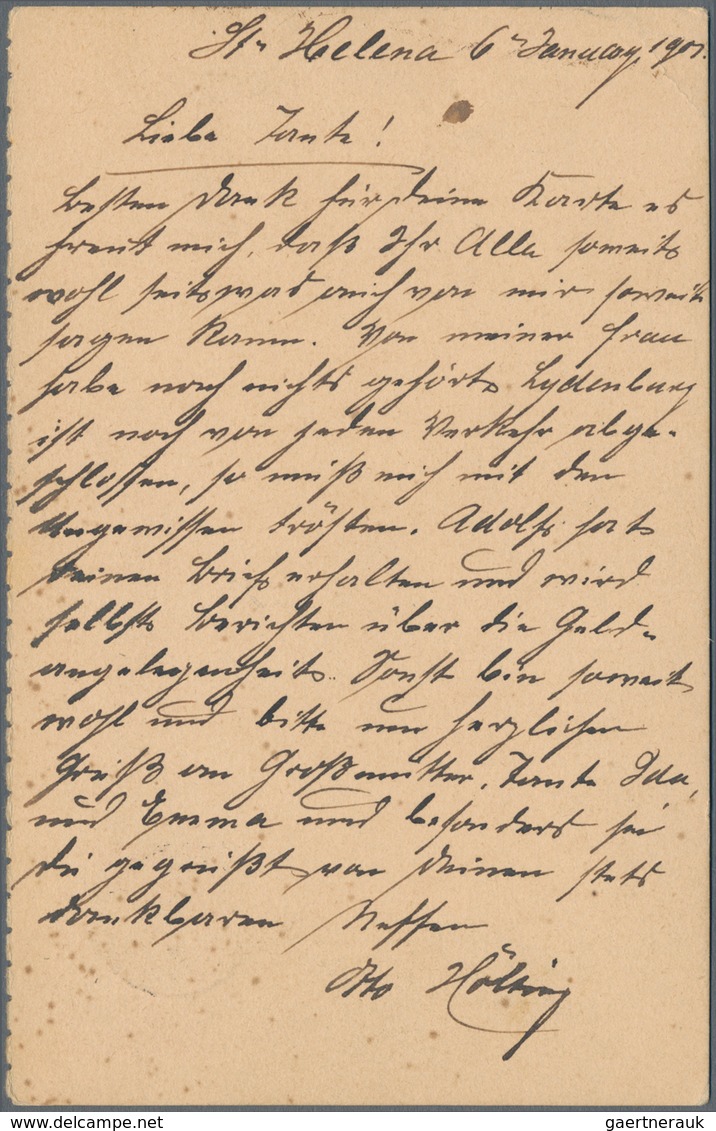 St. Helena 6 January 1901.
Liebe Tante!
Besten Dank für deine Karte es
freut mich, daß Ihr Alle soweit
wohl seit was auch von mir soweit
sagen kann. Von meiner Frau
habe noch nichts gehört Lydenburg
ist noch von jeden Verkehr abge-
schlossen, so muß mich mit den
Ungewissen trösten. Adolf hat
deinen Brief erhalten und wird
selbst berichten über die Geld-
angelegenheit. Sonst bin soweit
wohl und bitte um herzlichen
Gruß an Großmutter, Tante Ida,
und Emma und besonders sei
du gegrüßt von deinen stets
dankbaren Neffen
Otto Hölting
gaertnerauk